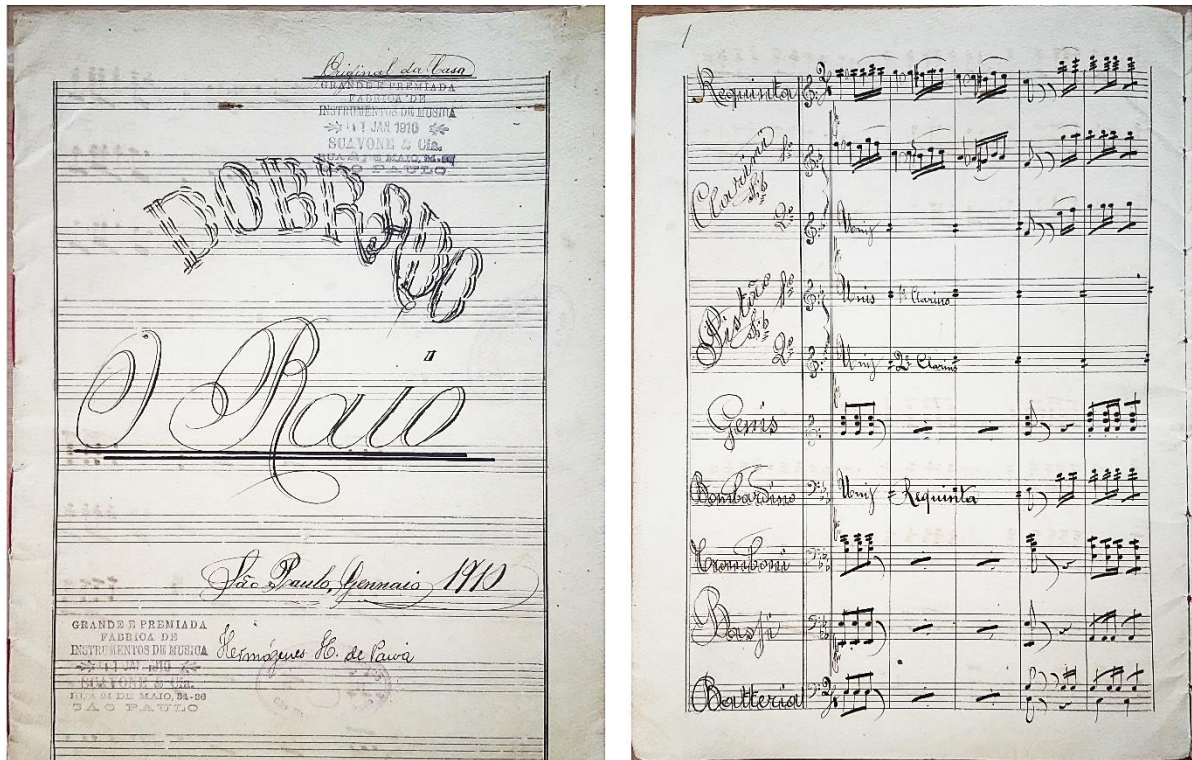 Original da Casa
GRANDE E PREMIADA
FABRICA DE
INSTRUMENTOS DE MUSICA
11 JAN 1910
SCAVONE & Cia.
RUA 24 DE MAIO, 34-36
SÃO PAULO
DOBRADO
O Raio
São Paulo, Gennaio 1910
GRANDE E PREMIADA
FABRICA DE
INSTRUMENTOS DE MUSICA
11 JAN 1910
SCAVONE & Cia.
RUA 24 DE MAIO, 34-36
SÃO PAULO
Hermógenes H. de Paiva
1
Requinta
Clarino Sib
1º
2º
Unis
Pistoño Sib
1º
Unis 1º Clarino
2º
Unis 2º Clarino
Genis
Bombardino Unis Requinta
Tromboni
Bassi
Batteria